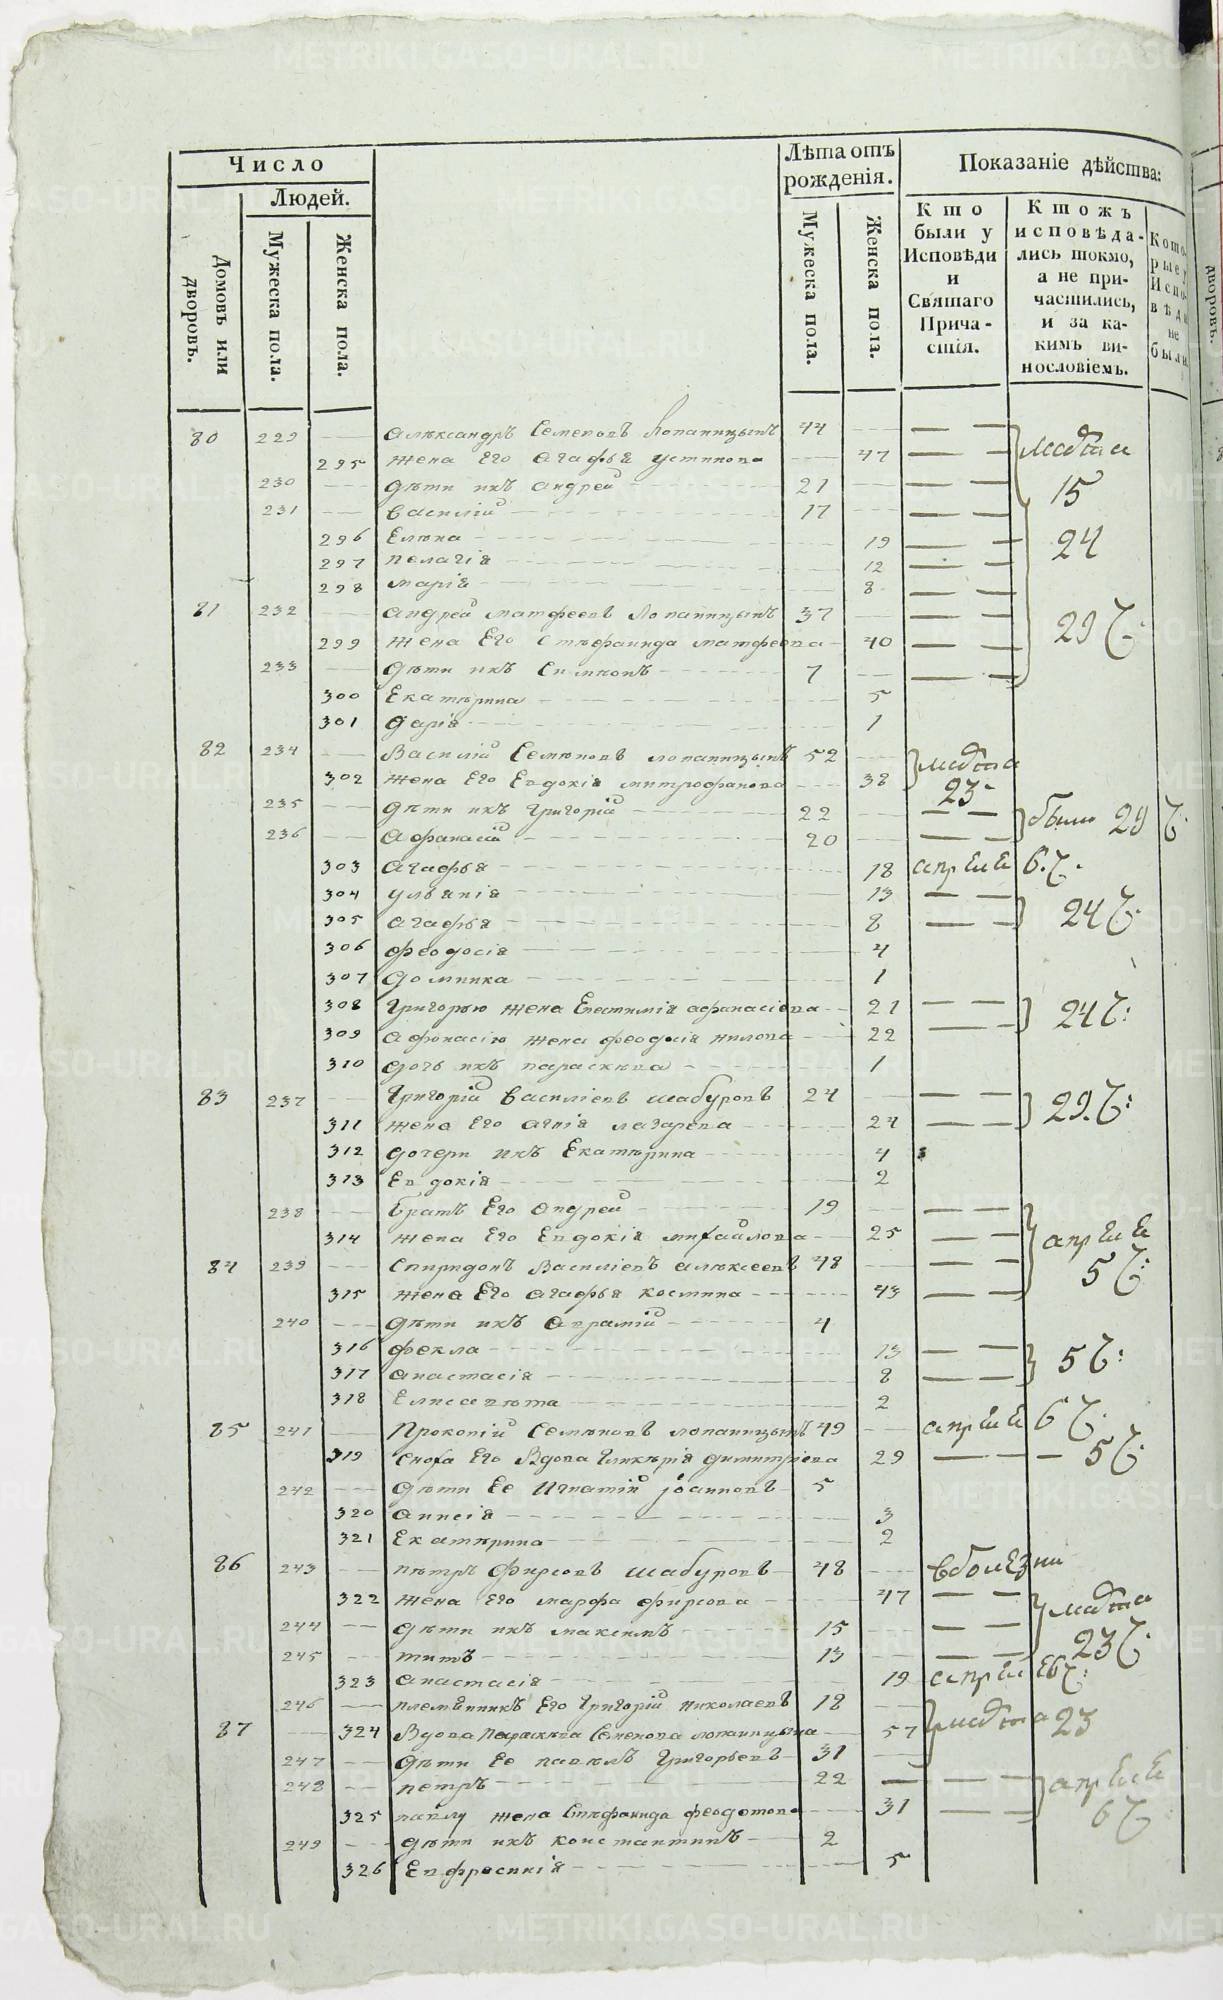 Число
Людей.
Домовъ или дворовъ.
Мужеска пола.
Женска пола.
Лѣта отъ рожденія.
Мужеска пола.
Женска пола.
Показаніе дѣйства:
Кто были у Исповѣди и Святаго Причастія.
Ктожъ исповѣдались токмо, а не причастились, и за какимъ винословіемъ.
Которые у Исповѣди не были
дворовъ.
80 229 Александръ Семеновъ Лопаницынъ 44
295 жена Его Агафья устинова 47 марта
230 дѣти ихъ Андрей 21 15
231 Василій 17
296 Елена 19 24
297 пелагія 12
298 марія 8
81 232 Андрей матфеевъ Лопаницынъ 37
299 жена Его Стефанида матфеева 40 29
233 дѣти ихъ Симеонъ 7
300 Екатерина 5
301 дарія 1
82 234 Василій Семеновъ лопаницынъ 52 марта
302 жена Его Евдокія митрофанова 38 23
235 дѣти ихъ Григорій 22
236 Афанасій 20 были 29
303 Агафья 18 апреля 6.
304 ульянія 13
305 Агафья 8 24
306 феодосія 4
307 домника 1
308 Григорью жена Евфимія афанасіева 21
309 Афонасію жена феодосія нилова 22 24
310 дочь ихъ параскева 1
83 237 Григорій Василіевъ шабуровъ 24
311 жена Его Агнія лазарева 24 29.
312 дочери ихъ Екатерина 4
313 Евдокія 2
238 братъ Его Андрей 19
314 жена Его Евдокія михайлова 25 апреля
84 239 Спиридонъ Василіевъ алексеевъ 48 5
315 жена Его Агафья костина 43
240 дѣти ихъ Аврамій 4
316 фекла 13
317 анастасія 8 5
318 Елисавета 2
85 241 Прокопій Семеновъ лопаницынъ 49 апреля 6
319 сноха Его Вдова Гликерія димитріева 29 5
242 дѣти Ее Игнатий іоанновъ 5
320 анисія 3
321 Екатерина 2
86 243 петръ фирсовъ шабуровъ 48 вболезни
322 жена Его марфа фирсова 47 марта
244 дѣти ихъ максимъ 15
245 титъ 13 23
323 анастасія 19 апреля 6
246 племянникъ Его Григорій николаевъ 18
87 324 Вдова Параскева Семенова лопаницына 57 марта 23
247 дѣти Ее павелъ Григорьевъ 31
248 петръ 22 апреля
325 павлу жена Стефанида феодотова 31 6
249 дѣти ихъ константинъ 2
326 Евфросинія 5
METRIKI.GASO-URAL.RU